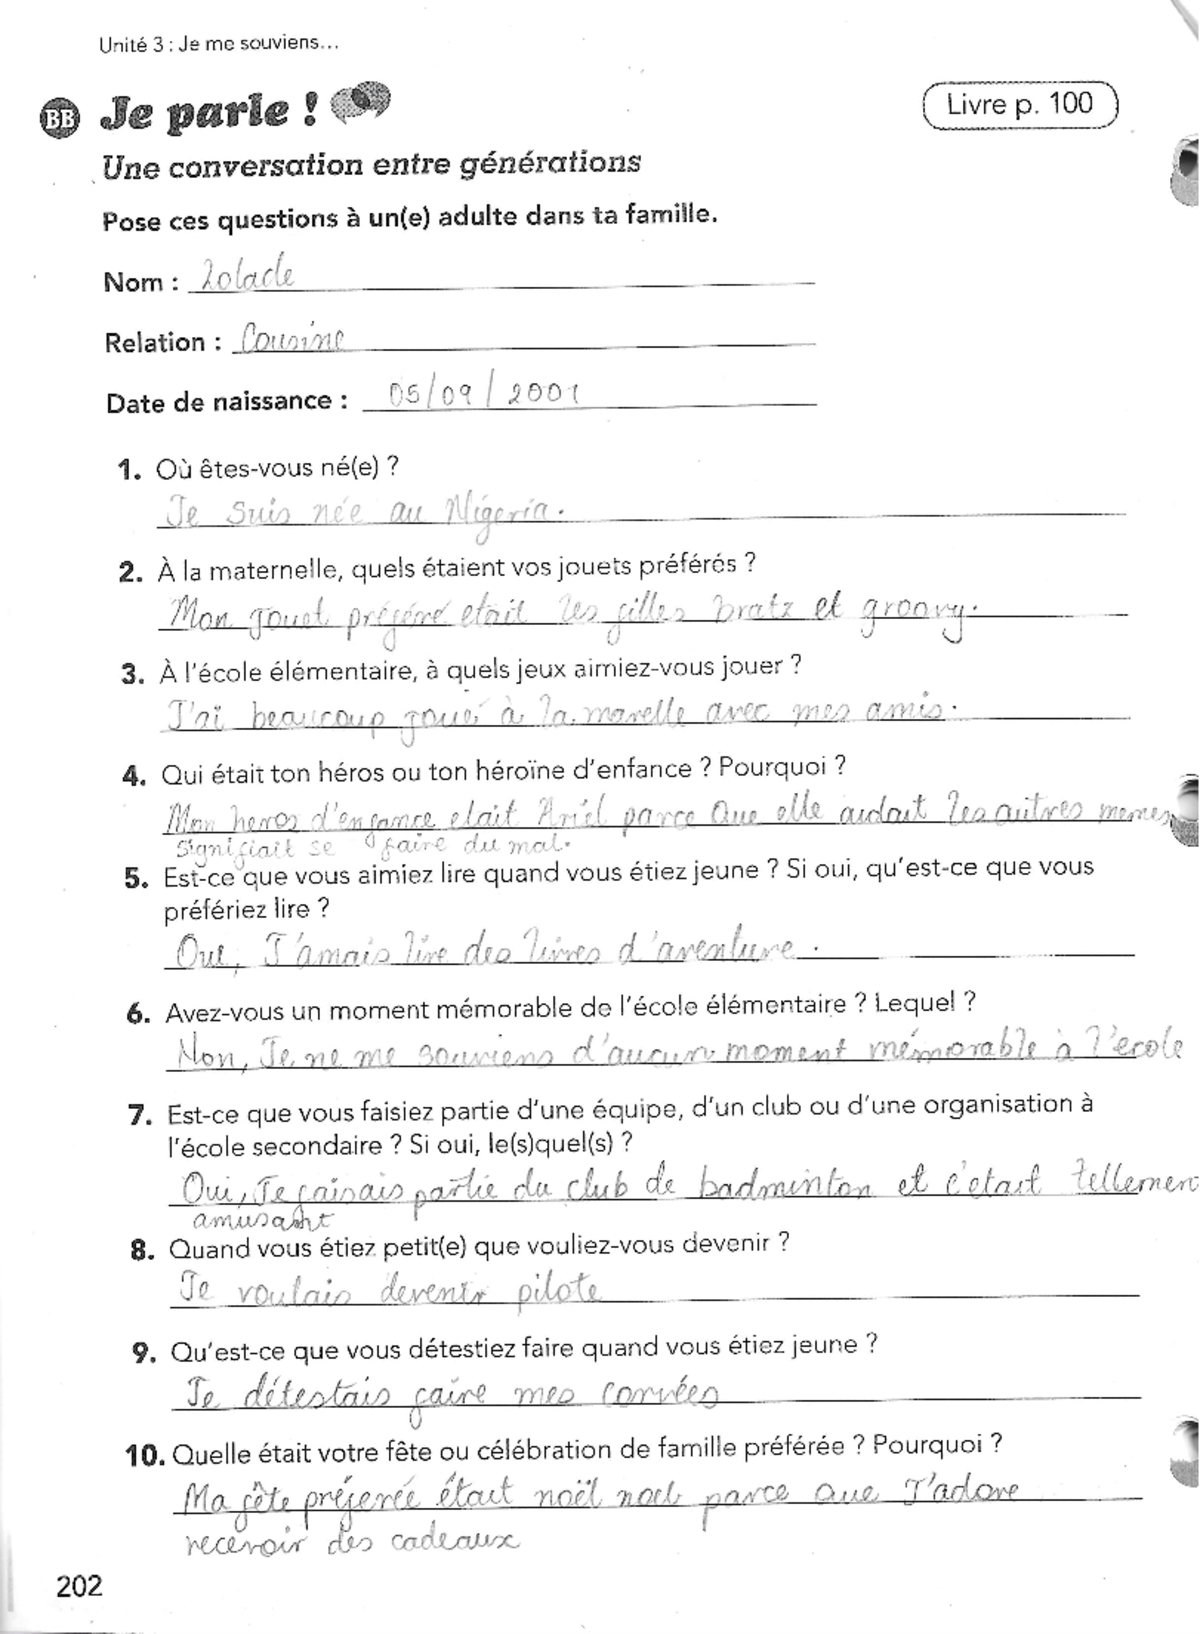 Unité 3 : Je me souviens...
BB Je parle !
Livre p. 100
Une conversation entre générations
Pose ces questions à un(e) adulte dans ta famille.
Nom : Lolade
Relation : Cousine
Date de naissance : 05/09/2001
1. Où êtes-vous né(e) ?
Je suis née au Nigeria.
2. À la maternelle, quels étaient vos jouets préférés ?
Mon jouet préféré etait les filles bratz et groovy.
3. À l'école élémentaire, à quels jeux aimiez-vous jouer ?
J'ai beaucoup joué à la marelle avec mes amis.
4. Qui était ton héros ou ton héroïne d'enfance ? Pourquoi ?
Mon heros d'enfance etait Ariel parce que elle aidait les autres memes
signifiait se faire du mal.
5. Est-ce que vous aimiez lire quand vous étiez jeune ? Si oui, qu'est-ce que vous
préfériez lire ?
Oui, J'amais lire des livres d'aventure.
6. Avez-vous un moment mémorable de l'école élémentaire ? Lequel ?
Non, Je ne me souviens d'aucun moment mémorable à l'école
7. Est-ce que vous faisiez partie d'une équipe, d'un club ou d'une organisation à
l'école secondaire ? Si oui, le(s)quel(s) ?
Oui, Je faisais partie du club de badminton et c'était tellemen
amusant
8. Quand vous étiez petit(e) que vouliez-vous devenir ?
Je voulais devenir pilote
9. Qu'est-ce que vous détestiez faire quand vous étiez jeune ?
Je détestais faire mes corvées
10. Quelle était votre fête ou célébration de famille préférée ? Pourquoi ?
Ma fête préferée était noël noel parce que J'adore
recevoir des cadeaux
202